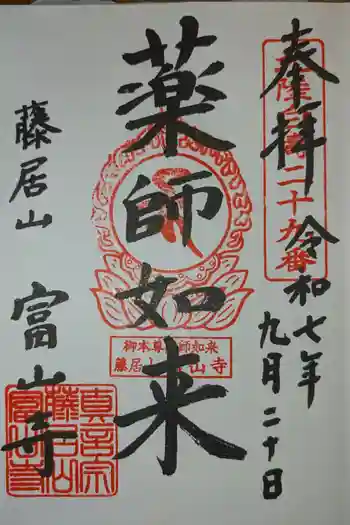 奉拝
令和七年
九月二十日
薬師如来
御本尊薬師如来
藤居山富山寺
藤居山
富山寺
真言宗
藤居山
富山寺